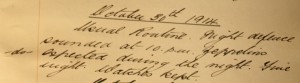 October 30th 1914.
Usual Routine. Night defence
sounded at 10. p.m. Zeppelins
do expected during the night. Fine
night. Watches kept.